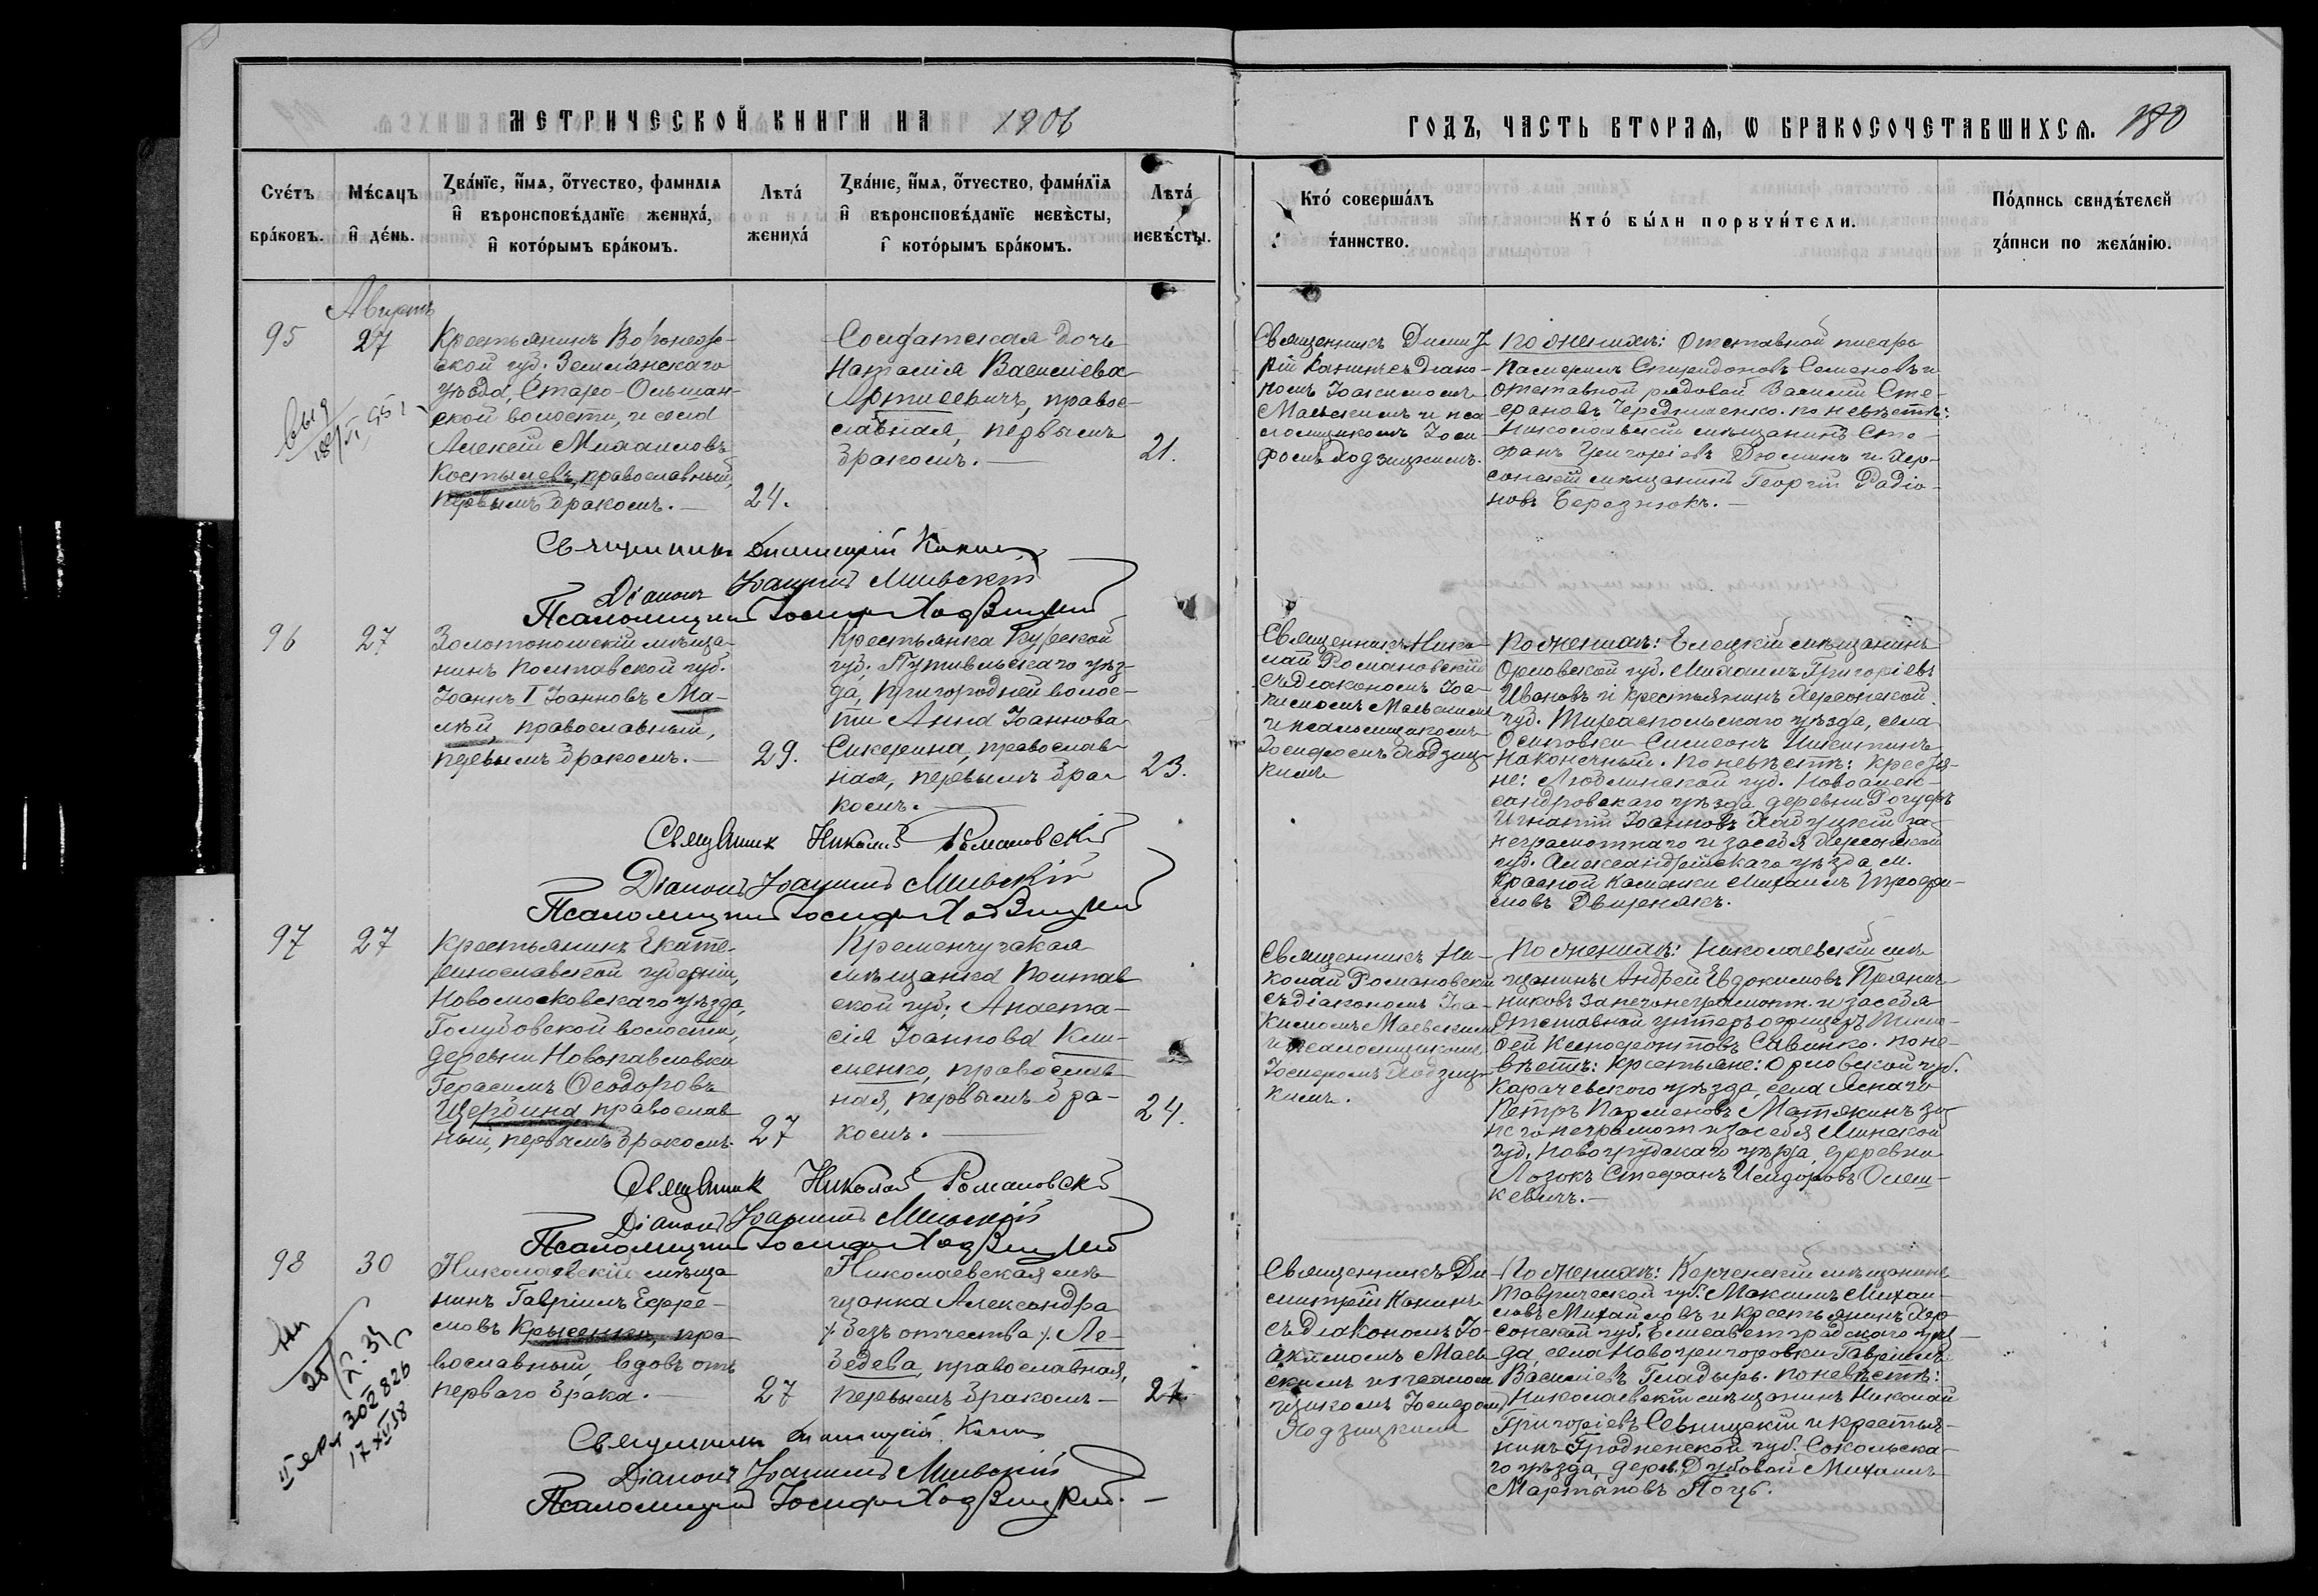 МЕТРИЧЕСКОЙ КНИГИ НА 1906
ГОДЪ, ЧАСТЬ ВТОРАЯ, Ѡ БРАКОСОЧЕТАВШИХСЯ. 180
Счетъ браковъ.
Мѣсяцъ и день.
Званїе, имя, отчество, фамилїя
и вѣроисповѣданїе жениха,
и которымъ бракомъ.
Лѣта
жениха
Званїе, имя, отчество, фамилїя
и вѣроисповѣданїе невѣсты,
и которымъ бракомъ.
Лѣта
невѣсты.
Кто совершалъ
таинство.
Кто были поручители.
Подпись свидѣтелей
записи по желанїю.
Августъ
95
27
Крестьянинъ Воронеж-
ской губ. Землянскаго
уѣзда, Старо-Ольшан-
ской волости, и села
Алексѣй Михаиловъ
Костылевъ, православный,
первымъ бракомъ. —
24.
Солдатская дочь
Наталія Василіева
Артисевичъ, правос-
лавная, первымъ
бракомъ. —
21.
Священникъ Дими-
трій Канинъ съ діако-
номъ Іоакимомъ
Маевскимъ и пса-
ломщикомъ Іоси-
фомъ Ходзицкимъ.
По женихѣ: Отставной писарь
Спиридоновъ Семеновъ и
отставной рядовой Василій Сте-
фановъ Чередниченко. по невѣстѣ:
Николаевскій мѣщанинъ Сте-
фанъ Григоріевъ Дюминъ и Хер-
сонскій мѣщанинъ Георгій Радіо-
новъ Березнюкъ. —
Священникъ Димитрій Канинъ
Діаконъ Іоакимъ Маевскій
Псаломщикъ Іосифъ Ходзицкій
96
27
Золотоношскій мѣща-
нинъ Полтавской губ.
Іоаннъ I Іоанновъ Ма-
лѣй, православный,
первымъ бракомъ. —
29.
Крестьянка Курской
губ. Путивльскаго уѣз-
да, Пригородней волос-
ти Анна Іоаннова
Сикерина, православ-
ная, первымъ бра-
комъ. —
23.
Священникъ Нико-
лай Романовскій
съ діакономъ Іоа-
кимомъ Маевскимъ
и псаломщикомъ
Іосифомъ Ходзиц-
кимъ
По женихѣ: Елецкій мѣщанинъ
Орловской губ. Михаилъ Григоріевъ
Ивановъ и крестьянинъ Херсонской
губ. Тираспольскаго уѣзда, села
Осиповки Симеонъ Никитинъ
Наконечный. По невѣстѣ: крестья-
не: Люблинской губ. Новоалек-
сандровскаго уѣзда деревни
Игнатій Іоанновъ за
неграмотнаго и за себя Херсонской
губ. Александрійскаго уѣзда, м.
Красной Каменки Михаилъ Трофи-
мовъ
Священникъ Николай Романовскій
Діаконъ Іоакимъ Маевскій
Псаломщикъ Іосифъ Ходзицкій
97
27
Крестьянинъ Екате-
ринославской губерніи,
Новомосковскаго уѣзда,
Голубовской волости,
деревни Новопавловки
Герасимъ Ѳеодоровъ
Щербина, православ-
ный, первымъ бракомъ.
27
Кременчугская
мѣщанка Полтав-
ской губ. Анаста-
сія Іоаннова Кли-
менко, православ-
ная, первымъ бра-
комъ. —
24.
Священникъ Ни-
колай Романовскій
съ діакономъ Іоа-
кимомъ Маевскимъ
и псаломщикомъ
Іосифомъ Ходзиц-
кимъ.
По женихѣ: Николаевскій мѣ-
щанинъ Андрей Евдокимовъ Прянич-
никовъ за него неграмотн. и за себя
Отставной унтеръ офицеръ Тимо-
фей Ксенофонтовъ Савенко. по не-
вѣстѣ: крестьяне: Орловской губ.
Карачевскаго уѣзда, села
Петръ Парменовъ Матякинъ за
него неграмотн и за себя Минской
губ, Новогрудскаго уѣзда, деревни
Лозокъ Стефанъ Исидоровъ Олеш-
кевичъ. —
Священникъ Николай Романовскій
Діаконъ Іоакимъ Маевскій
Псаломщикъ Іосифъ Ходзицкій
98
30
Николаевскій мѣща-
нинъ Гавріилъ Ефре-
мовъ пра-
вославный, вдовъ отъ
перваго брака. —
27
Николаевская мѣ-
щанка Александра
/безъ отчества/ Ле-
бедева, православная,
первымъ бракомъ —
21
Священникъ Ди-
митрій Канинъ
съ діакономъ Іо-
акимомъ Маев-
скимъ и псалом-
щикомъ Іосифомъ
Ходзицкимъ
По женихѣ: Керченскій мѣщанинъ
Таврической губ. Максимъ Михаи-
ловъ Михайловъ и крестьянинъ Хер-
сонской губ, Елисаветградскаго уѣз-
да, села Новогригоровки Гавріилъ
Василіевъ Гладырь. по невѣстѣ:
Николаевскій мѣщанинъ Николай
Григоріевъ и крестья-
нинъ Гродненской губ. Сокольска-
го уѣзда, дерев. Дубовой Михаилъ
Мартыновъ
Священникъ Димитрій Канинъ
Діаконъ Іоакимъ Маевскій
Псаломщикъ Іосифъ Ходзицкій. —